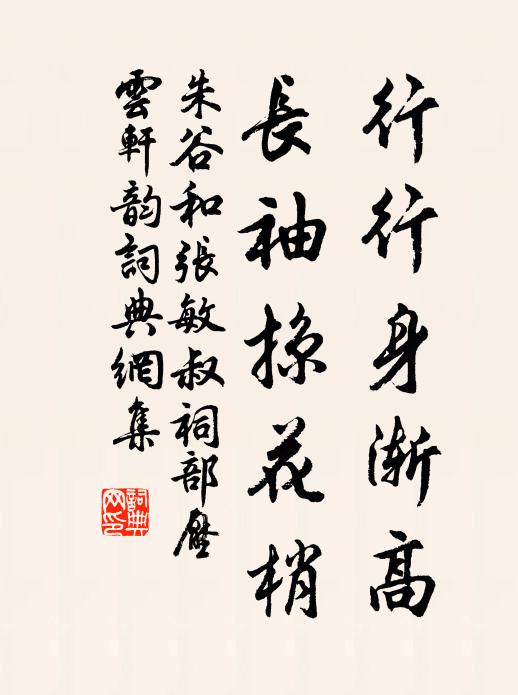 行行身漸高
長袖掠花梢
朱谷和張敏叔祠部壓
雲軒韵詞典網集
詞典网印